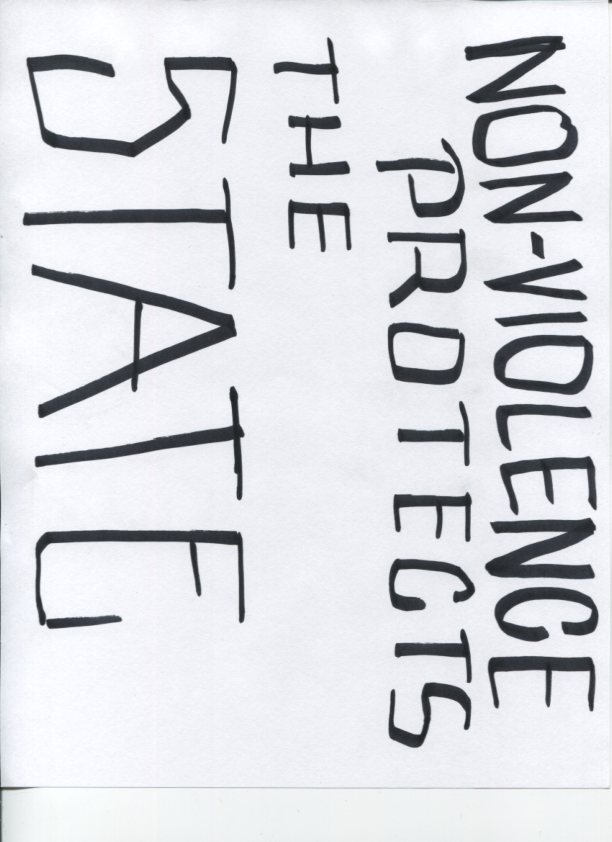 NON-VIOLENCE
PROTECTS
THE
STATE